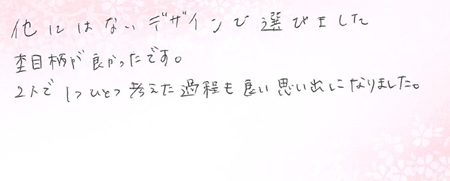 他にはないデザインで選びました
杢目柄が良かったです。
2人で1つひとつ考えた過程も良い思い出になりました。